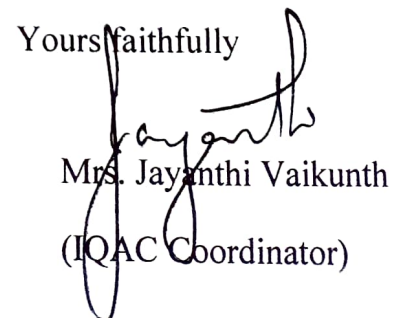 Yours faithfully
Jayanthi
Mrs. Jayanthi Vaikunth
(IQAC Coordinator)